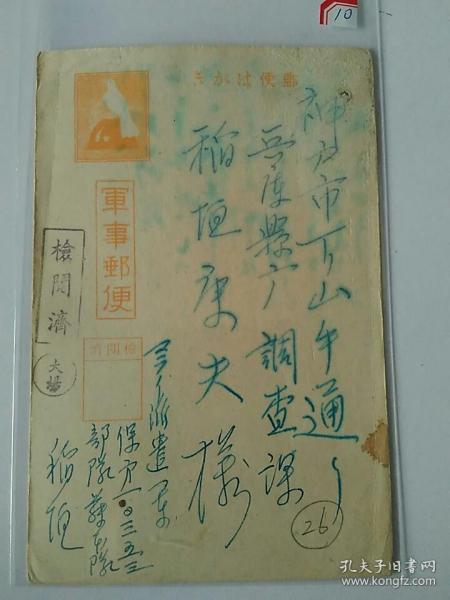 10
郵便はがき
神戸市下山手通り
兵庫縣庁調査課
稲垣康夫様
軍事郵便
検閲済
検閲済
大場
派遣軍
部隊
稲垣
26
孔夫子旧书网
www.kongfz.com